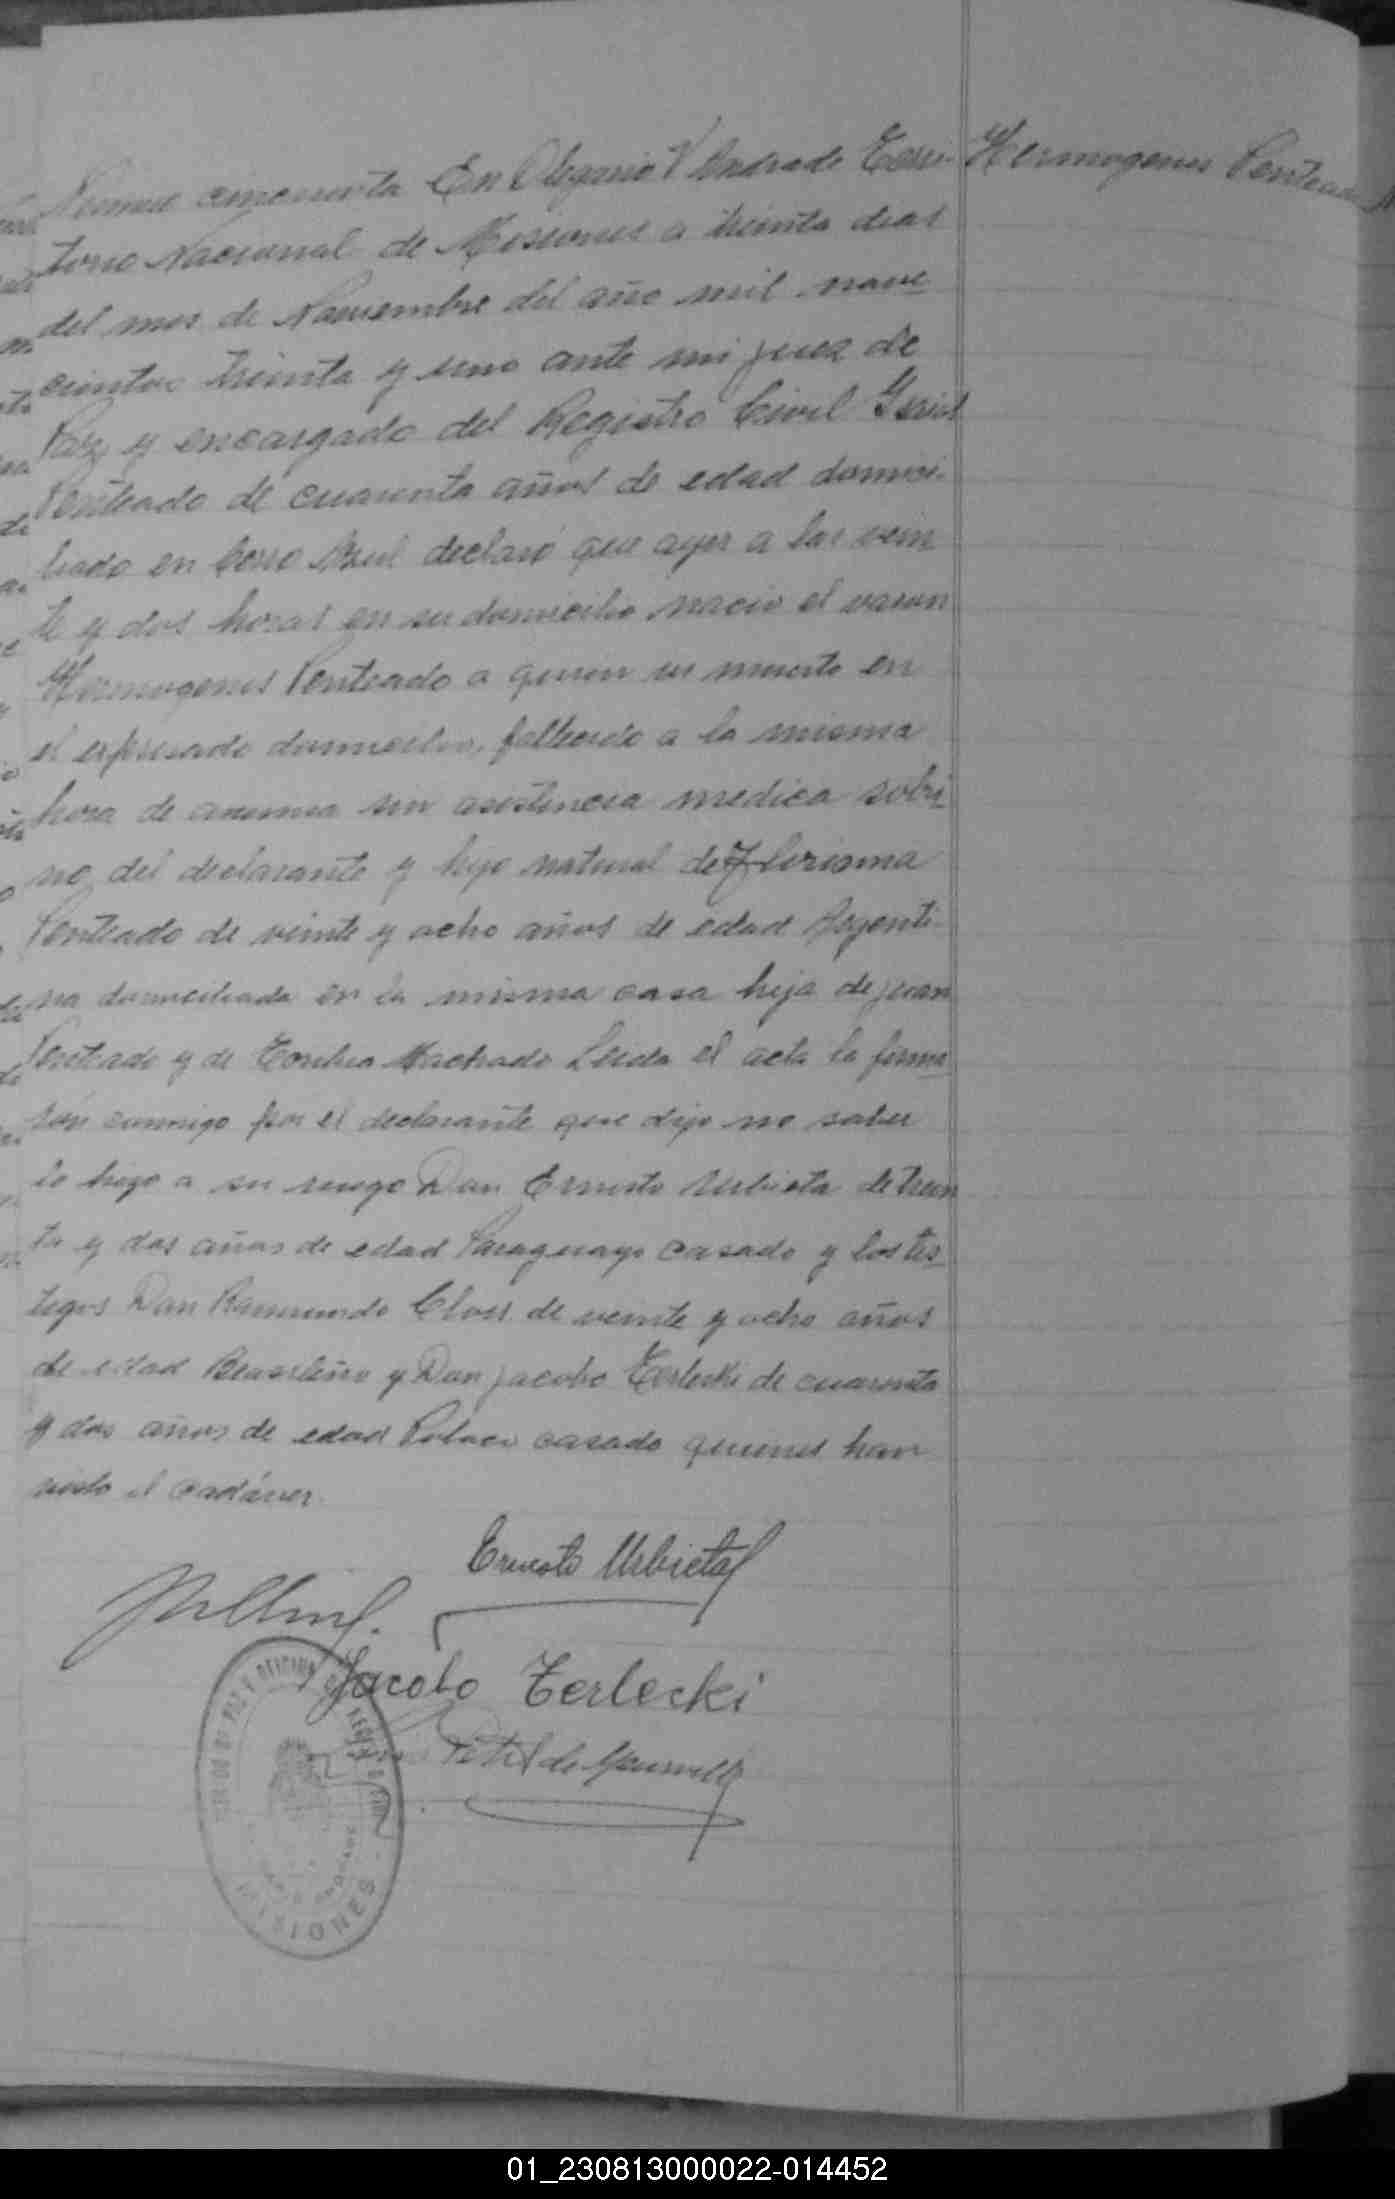 Numero cincuenta En Olegario V Andrade Terri-
Hermogenes Penteado
torio Nacional de Misiones a treinta dias
del mes de Noviembre del año mil nove
cientos treinta y uno ante mi juez de
Paz y encargado del Registro Civil
Penteado de cuarenta años de edad domici-
liado en Cerro Azul declaró que ayer a las vein
te y dos horas en su domicilio nacio el varon
Hermogenes Penteado a quien vio muerto en
el expresado domicilio, fallecido a la misma
hora de anemia sin asistencia medica sobri
no del declarante y hijo natural de Florisma
Penteado de veinte y ocho años de edad Argenti-
na domiciliada en la misma casa hija de juan
Penteado y de Machado Leida el acta la firma
rón conmigo por el declarante que dijo no saber
lo hizo a su ruego Don Ernesto Urbieta de trein
ta y dos años de edad Paraguayo casado y los tes
tigos Don Raimundo Closs de veinte y ocho años
de edad Brasileño y Don jacobo Terlecki de cuarenta
y dos años de edad Polaco casado quienes han
visto el cadáver.
Ernesto Urbieta
Jacobo Terlecki
MISIONES
01_230813000022-014452